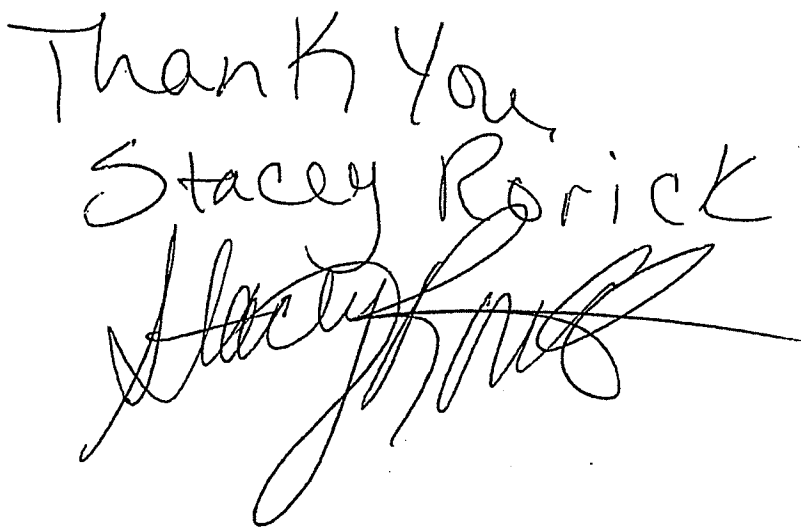 Thank You,
Stacey Rorick
Stacey Rorick